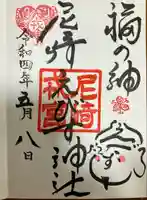 福の神
尼崎えびす神社
令和四年
五月
八日